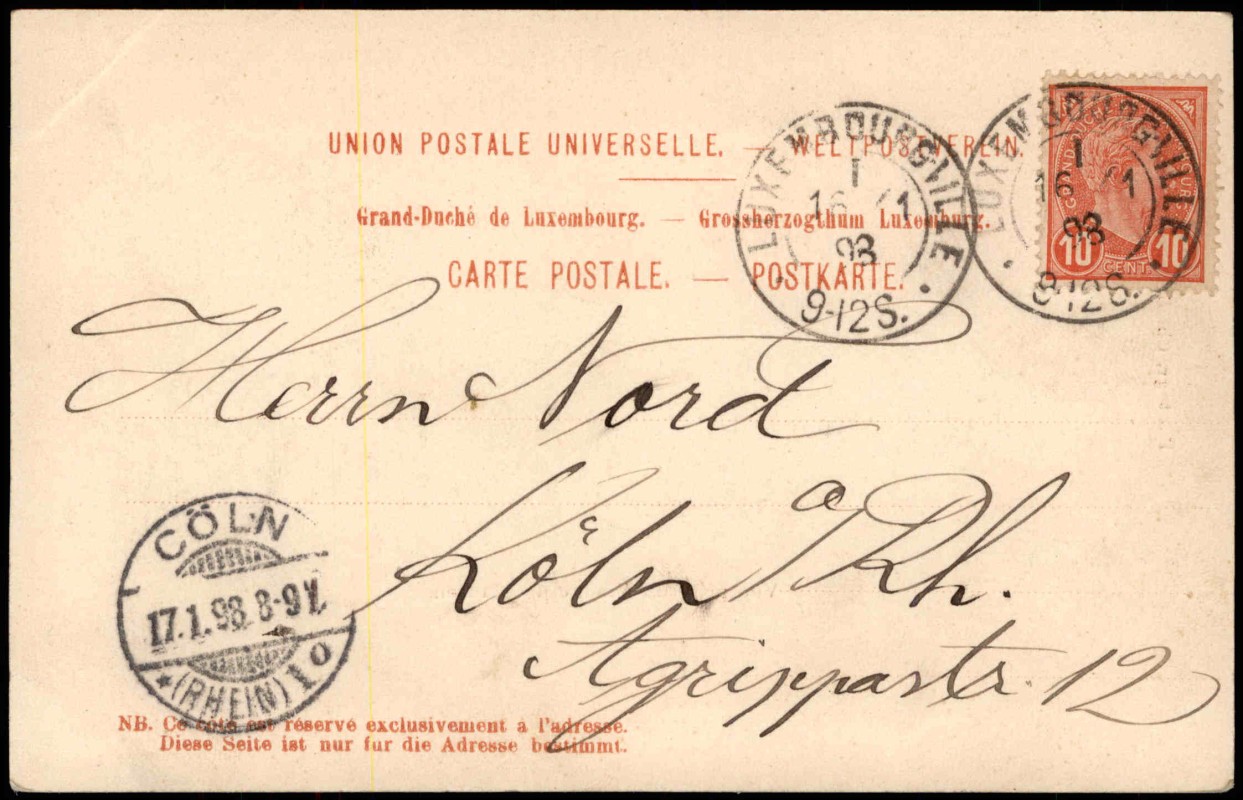 UNION POSTALE UNIVERSELLE. — WELTPOSTVEREIN.
Grand-Duché de Luxembourg. — Grossherzogthum Luxemburg.
CARTE POSTALE. — POSTKARTE.
LUXEMBOURG VILLE
1
16 /1
98
9-12S.
LUXEMBOURG VILLE
1
16 /1
98
9-12S.
10 CENT 10
Herrn Nord
Köln a/Rh.
Agrippastr. 12
CÖLN
17.1.98. 8-9V.
* (RHEIN) 1 o
NB. Ce côté est réservé exclusivement à l'adresse.
Diese Seite ist nur fur die Adresse bestimmt.